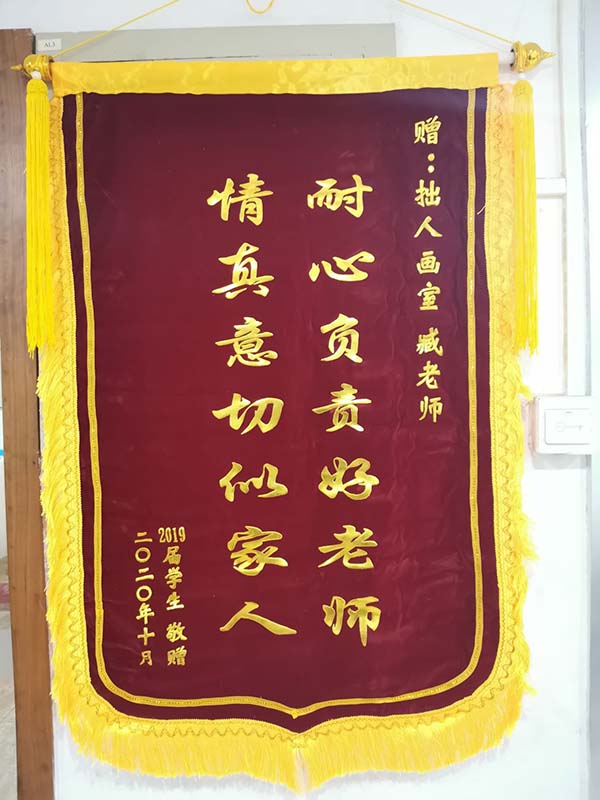 赠：拙人画室 臧老师
耐心负责好老师
情真意切似家人
2019届学生 敬赠
二〇二〇年十月
A1.3